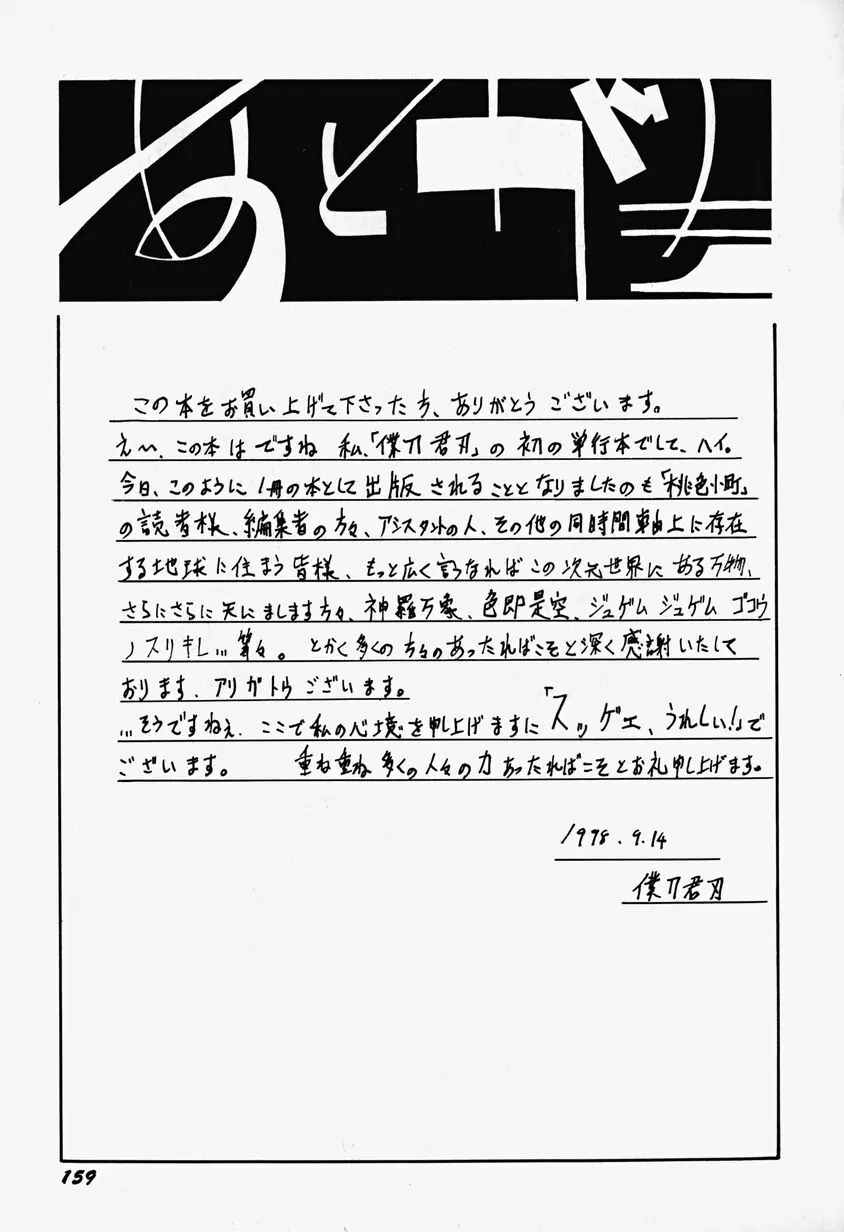 あとがき
この本をお買い上げて下さった方、ありがとうございます。
え〜、この本はですね 私、「僕刀君刃」の初の単行本でして、ハイ。
今日、このように1冊の本として出版されることとなりましたのも「桃色小町」
の読者様、編集者の方々、アシスタントの人、その他の同時間軸上に存在
する地球に住まう皆様、もっと広く言うなればこの次元世界にある万物、
さらにさらに天にまします方々、神羅万象、色即是空、ジュゲム ジュゲム ゴコウ
ノスリキレ…等々。 とかく多くの方々のあったればこそと深く感謝いたして
おります、アリガトウございます。
…そうですねぇ、ここで私の心境を申し上げますに「スッゲェ、うれしい!」で
ございます。 重ね重ね多くの人々の力あったればこそとお礼申し上げます。
1998.9.14
僕刀君刃
159